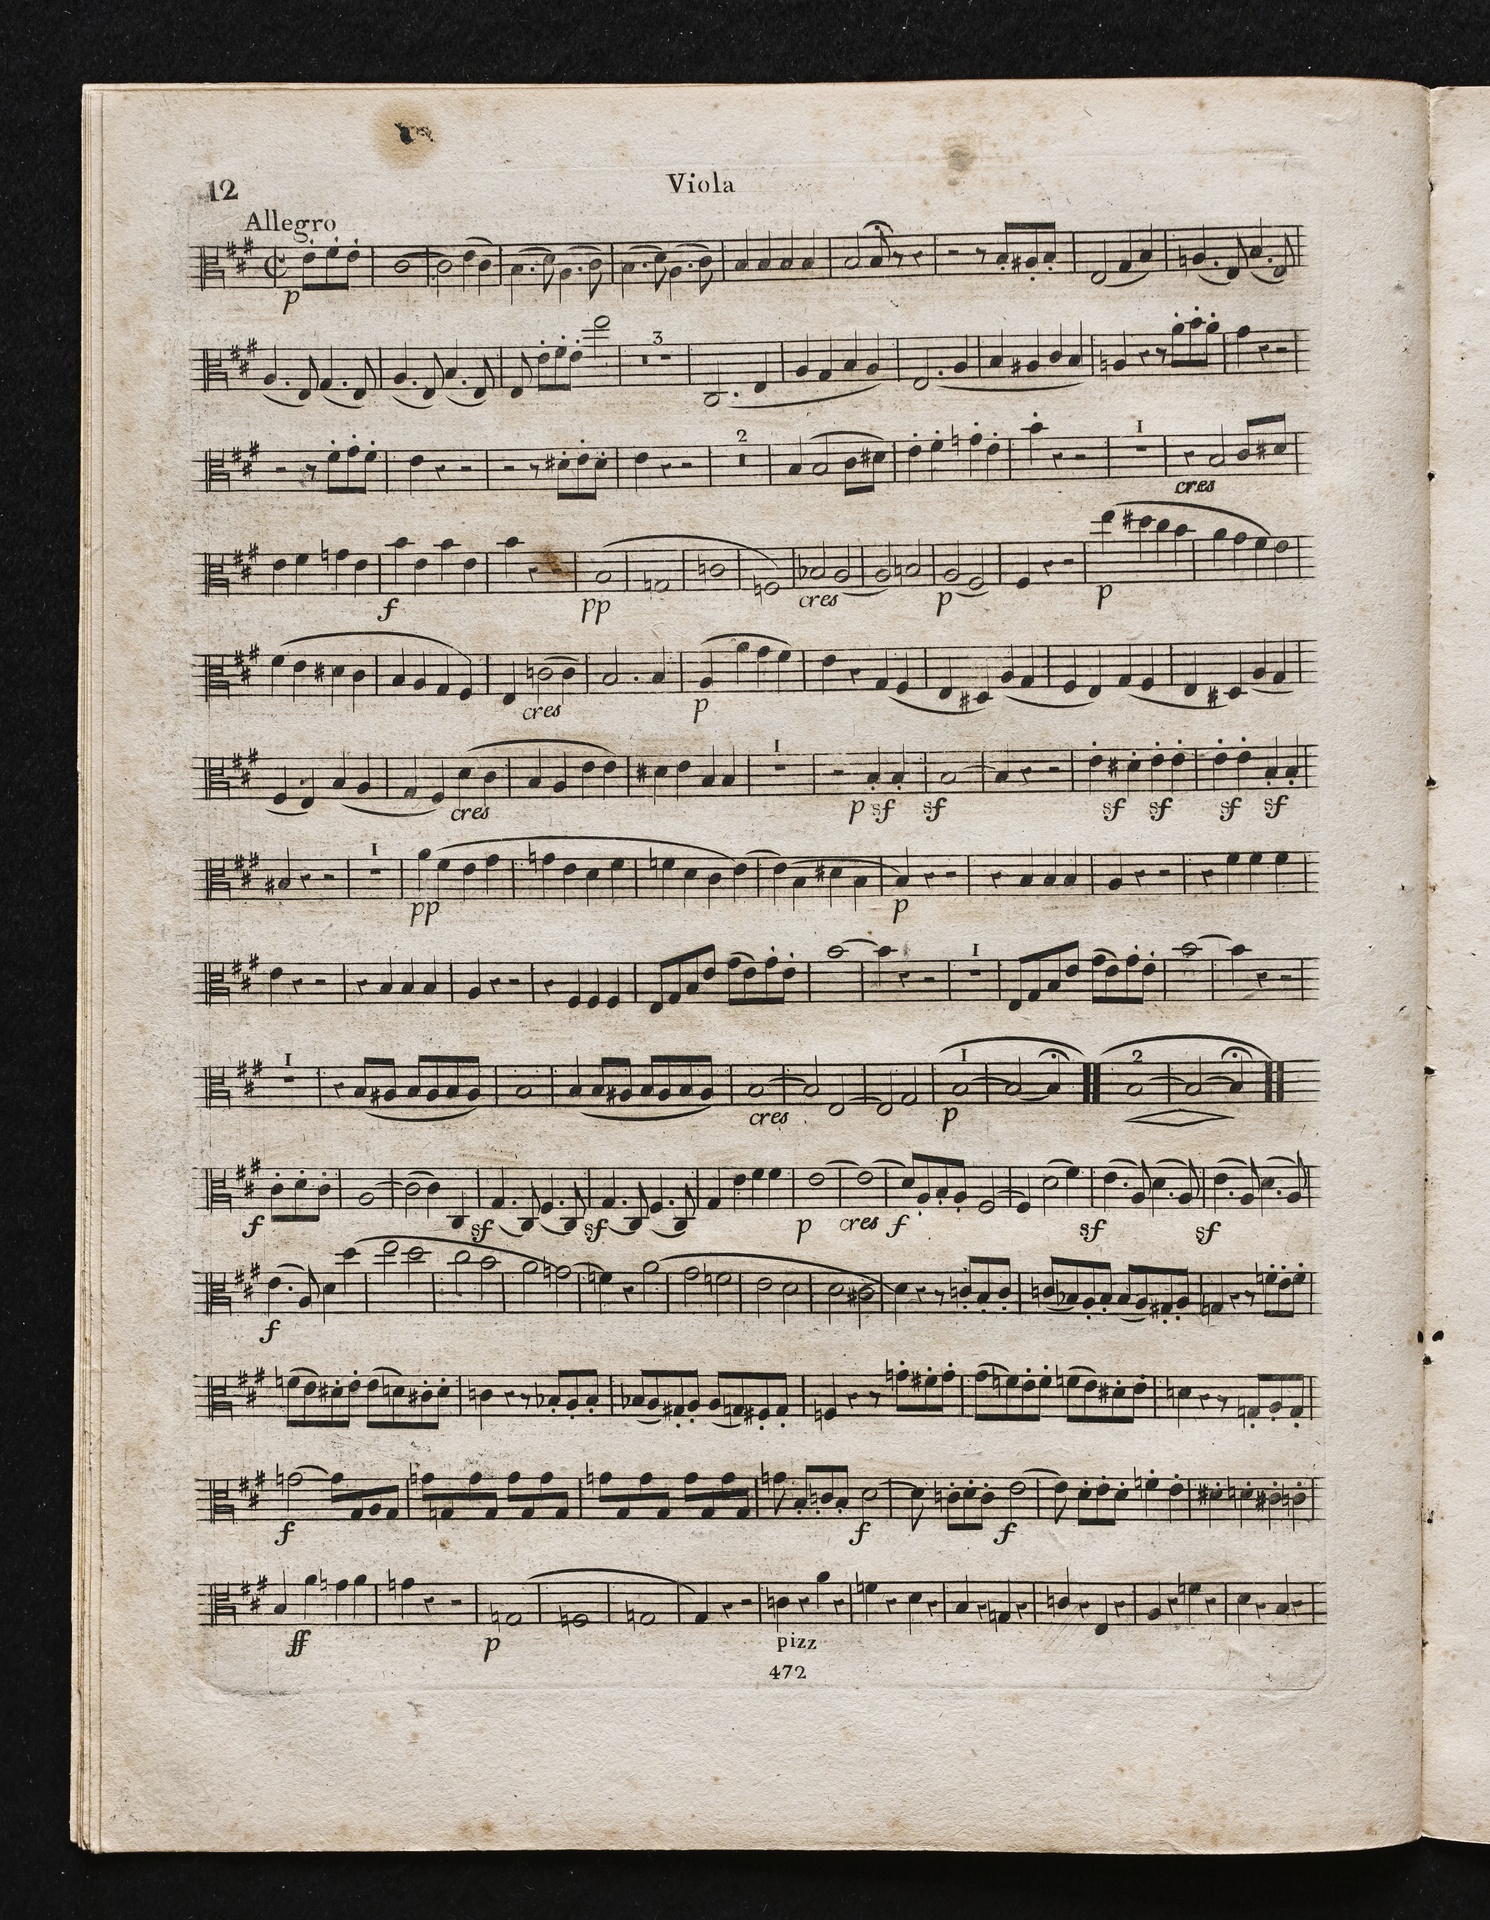 12
Viola
Allegro
p
3
2
I
cres
f
pp
cres
p
p
cres
p
I
cres
p sf sf sf sf sf sf
I
pp
p
I
I
I
2
cres
p
f
sf
sf
p
cres
f
sf
sf
f
f
f
f
ff
p
pizz
472